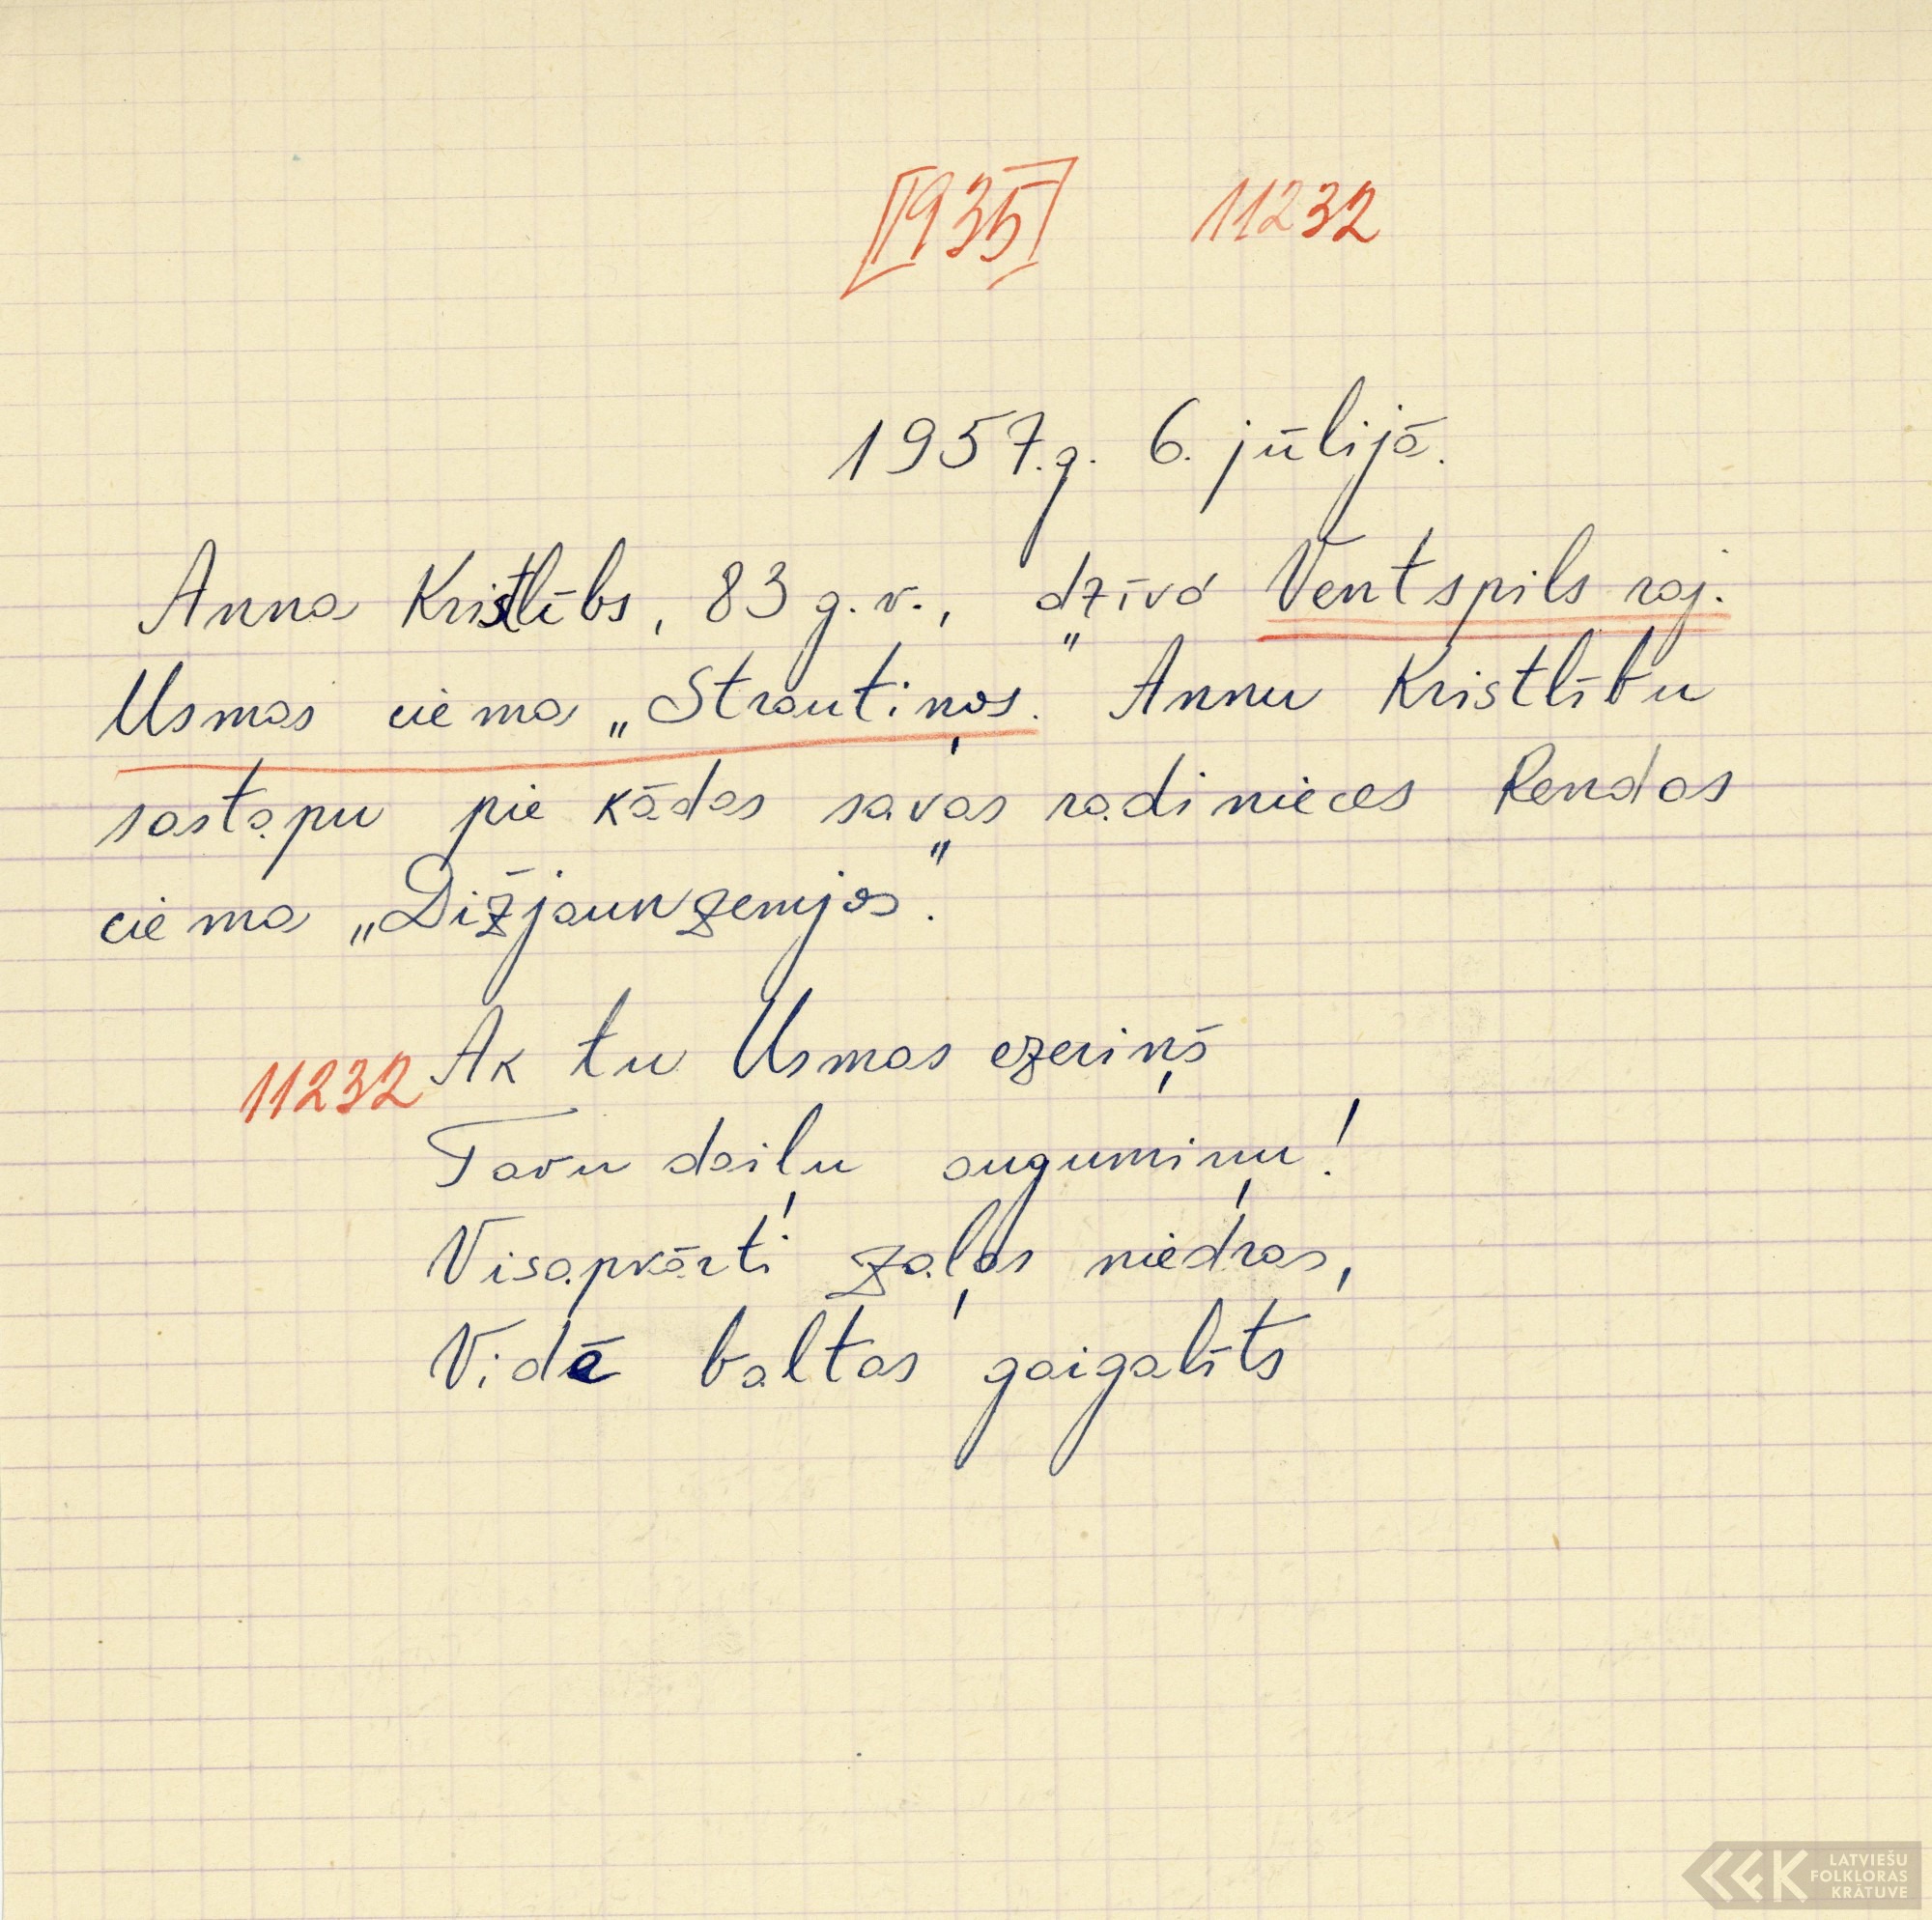 [1935] 11232
1957.g. 6. jūlijā.
Anna Kristlībs, 83 g.v., dzīvo Ventspils raj.
Usmas ciema „Strautiņos". Annu Kristlību
sastapu pie kādas savas radinieces Rendas
ciema „Dižjaunzemjos".
11232 Ak tu Usmas ezeriņš
Tavu daiļu augumiņu!
Visapkārti zaļas niedras,
Vidē baltas gaigalīts
LATVIEŠU
FOLKLORAS
KRĀTUVE